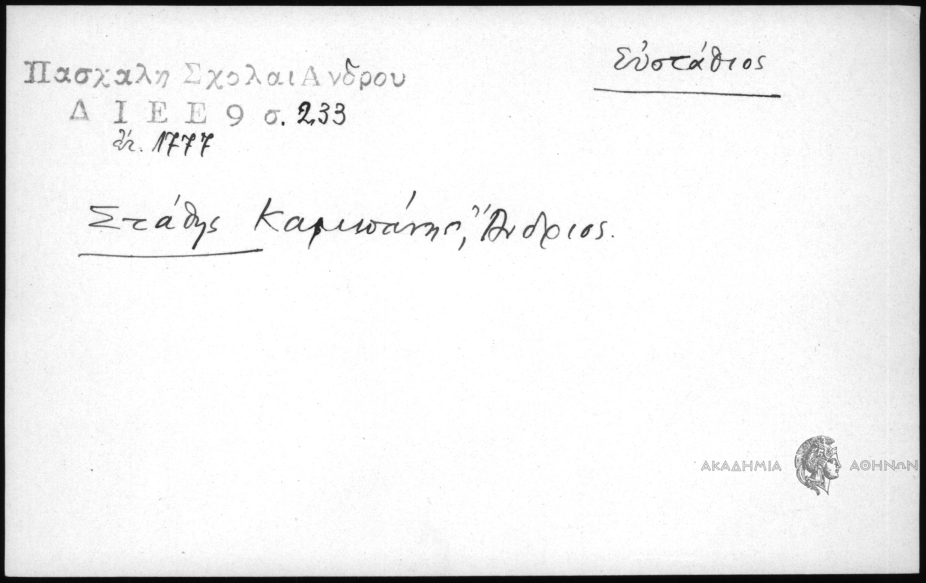 Εὐστάθιος
Πασχαλη Σχολαι Ανδρου
Δ Ι Ε Ε 9 σ. 233
ἔτ. 1777
Στάθης Καμπάνης, Ἄνδριος.
ΑΚΑΔΗΜΙΑ ΑΘΗΝΩΝ